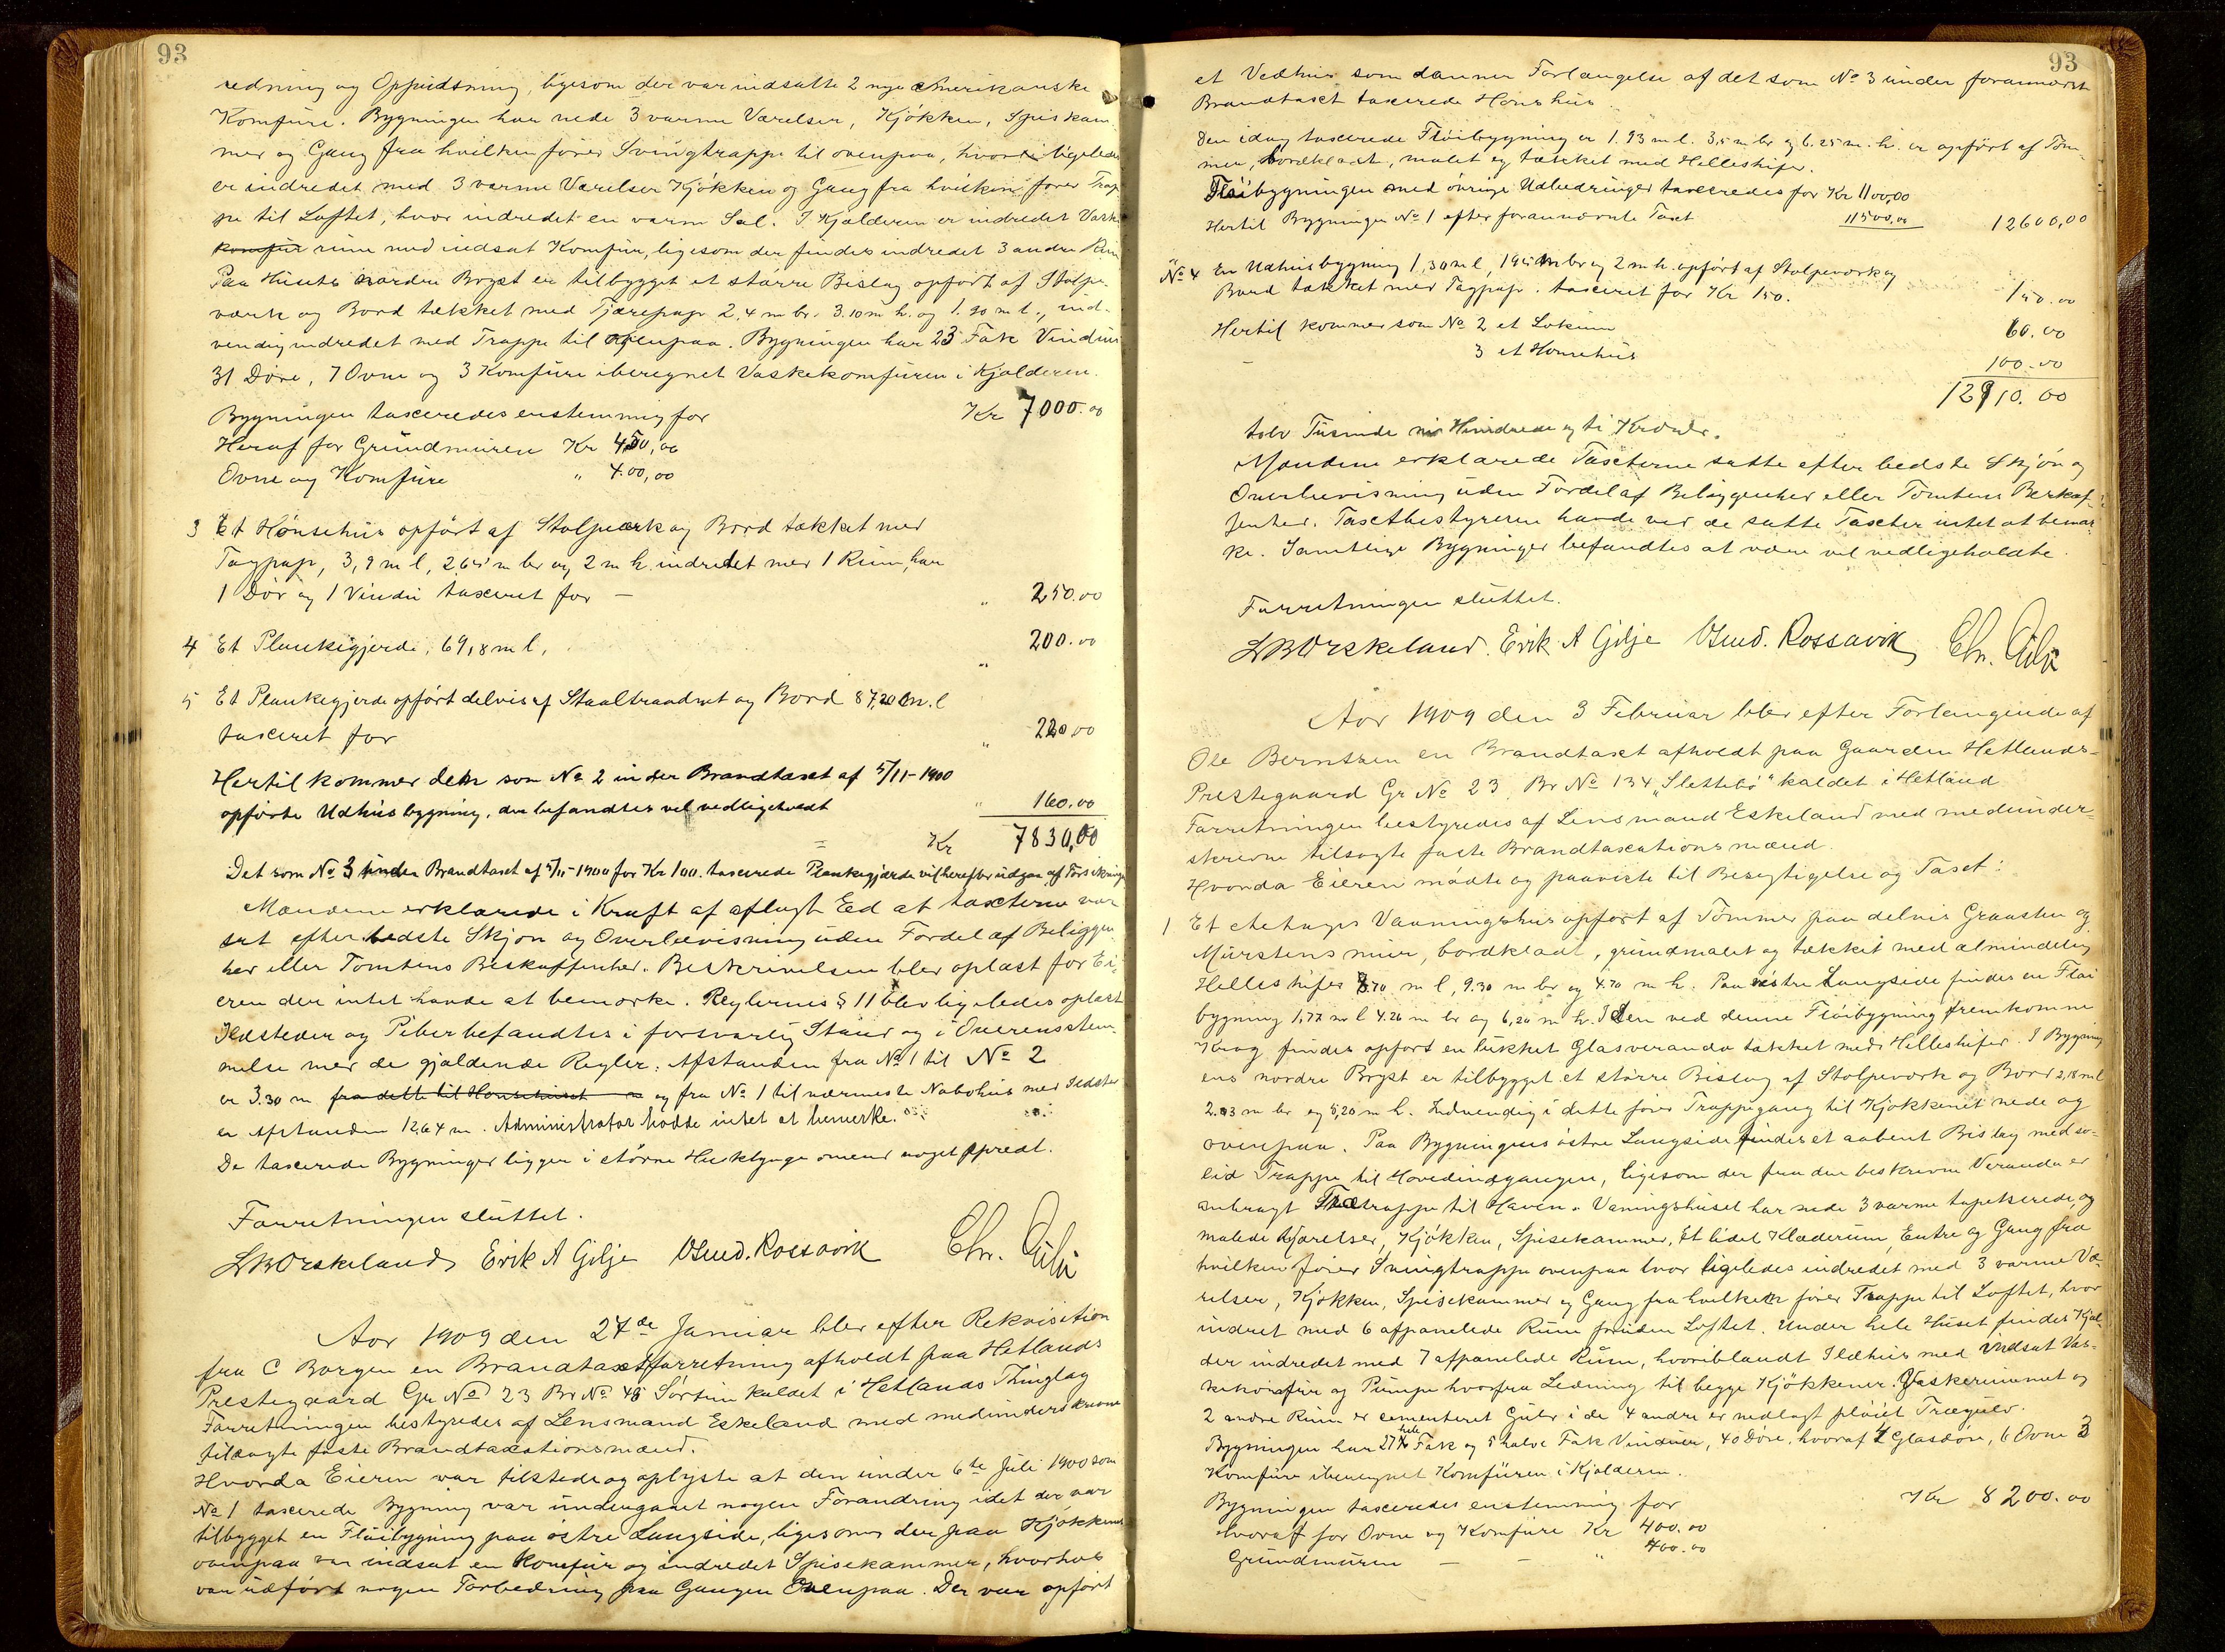 93
redning og Oppudsning, ligesom der var indsatte 2 nye Amerikanske
Komfure. Bygningen har nede 3 varme Værelser, Kjøkken, Spiskam-
mer og Gang fra hvilken fører Svingtrappe til ovenpaa, hvor ligeledes
er indredet med 3 varme Værelser Kjøkken og Gang fra hvilken fører Trap
pe til Loftet, hvor indredet en varm Sal. I Kjælderen er indredet Vaske
komfur rum med indsat Komfur, ligesom der findes indredet 3 andre Rum
Paa Husets nordre Bryst er tilbygget et större Bislag opført af Stolpe-
værk og Bord tækket med Tjærepap 2,4 m br. 3.10 m h. og 1.90 m l., ind-
vendig indredet med Trappe til ovenpaa. Bygningen har 23 Fak Vinduer
31 Döre, 7 Ovne og 3 Komfure iberegnet Vaskekomfuren i Kjælderen.
Bygningen taxeredes enstemmig for Kr 7000.00
Heraf for Grundmuren Kr 450,00
Ovne og Komfure " 400,00
3 Et Hönsehus opført af Stolpeværk og Bord tækket med
Tagpap, 3,9 m l, 2.65 m br og 2 m h. indredet med 1 Rum, har
1 Dör og 1 Vindu taxeret for — " 250.00
4 Et Plankegjerde, 69,8 m l, " 200.00
5 Et Plankegjerde opført delvis af Staaltraadnet og Bord 87,20 m. l
taxeret for " 220,00
Hertil kommer den som No 2 under Brandtaxt af 5/11-1900
opførte Udhusbygning, der befandtes vel vedligeholdt " 160.00
= Kr 7830,00
Det som No 3 under Brandtaxt af 5/11-1900 for Kr 100. taxerede Plankegjærde vil herefter udgaa af Forsikringen
Mændene erklærede i Kraft af aflagt Eed at taxterne var
sat efter bedste Skjøn og Overbevisning uden Fordel af Beliggen
hed eller Tomtens Beskaffenhed. Beskrivelsen blev oplæst for Ei-
eren der intet havde at bemærke. Reglernes § 11 blev ligeledes oplæst
Ildsteder og Piber befandtes i forsvarlig Stand og i Overensstem-
melse med de gjældende Regler. Afstanden fra No 1 til No 2
er 3.30 m fra dette til Hønsehuset m og fra No 1 til nærmeste Nabohus med Ildsted
er Afstanden 12,64 m. Administrator hadde intet at bemerke.
De taxerede Bygninger ligger i større Husklynge omend noget spredt.
Forretningen sluttet.
LBOrskeland Erik A Gilje OSmd. Rossavik Chr. Gilje
Aar 1909 den 27de Januar blev efter Rekvisition
fra C Borgen en Brandtaxtforretning afholdt paa Hetlands
Prestegaard Gr No 23 Br No 48 Sørtun kaldet i Hetlands Thinglag
Forretningen bestyredes af Lensmand Eskeland med medunderskrevne
tilsagte faste Brandtaxationsmænd.
Hvorda Eieren var tilstede og oplyste at den under 6te Juli 1900 som
No 1 taxerede Bygning var undergaaet nogen Forandring idet der var
tilbygget en Fløibygning paa östre Langside, ligesom der paa Kjøkkenet
ovenpaa var indsat en Komfur og indredet Spisekammer, hvorhos
var udført nogen Forbedring paa Gangen Ovenpaa. Der var opført
93
et Vedhus som danner Forlængelse af det som No 3 under forannævnte
Brandtaxt taxerede Hønshus.
Den idag taxerede Fløibygning er 1.93 m l. 3,5 m br og 6.25 m. h. er opført af Töm-
mer, bordklædt, malet og tækket med Helleskifer.
Fløibygningen med övrige Udbedringer taxeredes for Kr 1100,00
Hertil Bygningen No 1 efter forannævnte Taxt 11500,00 12600,00
No 4 En Udhusbygning 1,30 m l, 1,95 m br og 2 m h. opført af Stolpeværk og
Bord tækket med Tagpap. taxeret for Kr 150. 150.00
Hertil kommer som No 2 et Lokum 60.00
— 3 et Hønsehus 100.00
12910.00
tolv Tusinde ni Hundrede og ti Kroner.
Mændene erklærede Taxterne satte efter bedste Skjøn og
Overbevisning uden Fordel af Beliggenhed eller Tomtens Beskaf-
fenhed. Taxtbestyreren havde ved de satte Taxter intet at bemær-
ke. Samtlige Bygninger befandtes at være vel vedligeholdte.
Forretningen sluttet.
LBOrskeland. Erik A Gilje OSmd. Rossavik Chr. Gilje
Aar 1909 den 3 Februar blev efter Forlangende af
Ole Berntzen en Brandtaxt afholdt paa Gaarden Hetlands-
Prestegaard Gr No 23 Br No 134 „Slettebö" kaldet i Hetland
Forretningen bestyredes af Lensmand Eskeland med medunder-
skrevne tilsagte faste Brandtaxationsmænd.
Hvorda Eieren mødte og paaviste til Besigtigelse og Taxt:
1 Et etetages Vaaningshus opført af Tömmer paa delvis Graasten og
Murstensmur, bordklædt, grundmalet og tækket med almindelig
Helleskifer 8.70 m l, 9.30 m br og 4.70 m h. Paa vestre Langside findes en Fløi
bygning 1,77 m l 4.26 m br og 6,20 m h. I den ved denne Fløibygning fremkomne
Krog findes opført en lukket Glasveranda tækket med Helleskifer. I Bygning
ens nordre Bryst er tilbygget et större Bislag af Stolpeværk og Bord 2,18 m l
2.03 m br og 5,20 m h. Indvendig i dette fører Trappegang til Kjøkkenet nede og
ovenpaa. Paa Bygningens östre Langside findes et aabent Bislag med so-
lid Trappe til Hovedindgangen, ligesom der fra den beskrevne Veranda er
anbragt Trætrappe til Haven. Vaningshuset har nede 3 varme tapetserede og
malede Værelser, Kjøkken, Spisekammer, Et lidet Klæderum, Entre og Gang fra
hvilken fører Svingtrappe ovenpaa hvor ligeledes indredet med 3 varme Væ-
relser, Kjøkken, Spisekammer og Gang fra hvilken fører Trappe til Loftet, hvor
indret med 6 afpanelede Rum foruden Loftet. Under hele Huset findes Kjæl-
der indredet med 7 afpanelede Rum, hvoriblandt Ildhus med indsat Vas-
kekomfur og Pumpe hvorfra Ledning til begge Kjökkener. Vaskerummet og
2 andre Rum er cementeret Gulv i de 4 andre er nedlagt pløiet Trægulv.
Bygningen har 27 hele Fak og 5 halve Fak Vinduer, 40 Döre, hvoraf 4 Glasdöre, 6 Ovne 3
Komfure iberegnet Komfuren i Kjælderen.
Bygningen taxeredes enstemmig for Kr 8200.00
Hvoraf for Ovne og Komfure Kr 400.00
Grundmuren — — " 400.00